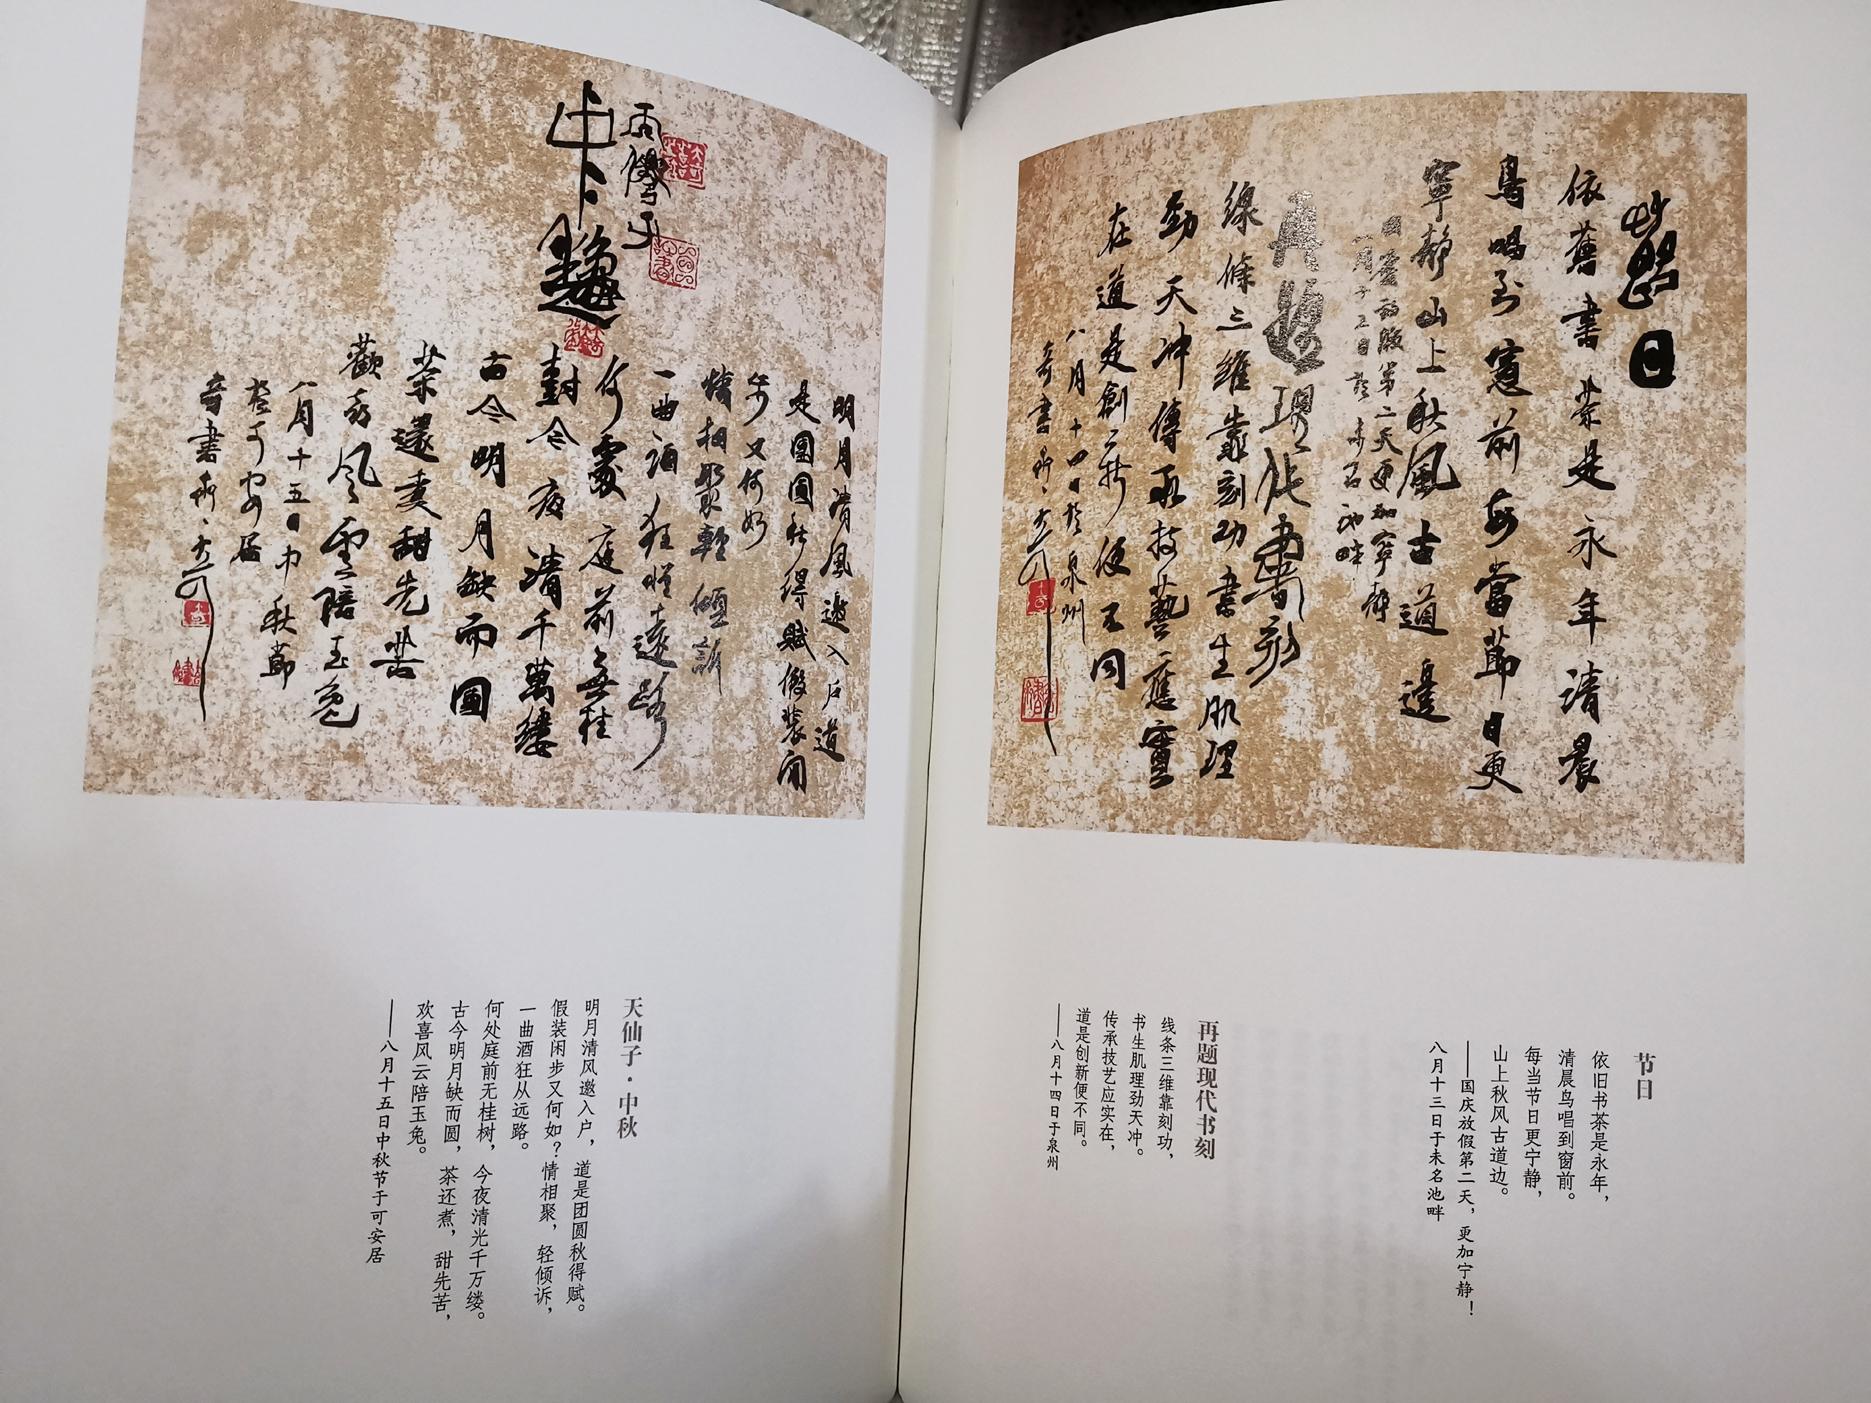 節日
依舊書茶是永年清晨
鳥唱到窗前每當節日更
寧靜山上秋風古道邊
國慶放假第二天更加寧靜
八月十三日於未名池畔
再題現代書刻
線條三維靠刻功書生肌理
勁天冲傳承技藝應實
在道是創新便不同
八月十四日於泉州
节日
依旧书茶是永年，
清晨鸟唱到窗前。
每当节日更宁静，
山上秋风古道边。
——国庆放假第二天，更加宁静！
八月十三日于未名池畔
再题现代书刻
线条三维靠刻功，
书生肌理劲天冲。
传承技艺应实在，
道是创新便不同。
——八月十四日于泉州
明月清風邀入戶道
是團圓秋得賦假裝閒
步又何如
情相聚輕傾訴
一曲酒狂從遠路
何處庭前無桂
樹今夜清千萬縷
古今明月缺而圓
茶還煮甜先苦
歡喜風雲陪玉兔
八月十五日中秋節
於可安居
天仙子·中秋
明月清风邀入户，道是团圆秋得赋。
假装闲步又何如？情相聚，轻倾诉，
一曲酒狂从远路。
何处庭前无桂树，今夜清光千万缕。
古今明月缺而圆，茶还煮，甜先苦，
欢喜风云陪玉兔。
——八月十五日中秋节于可安居